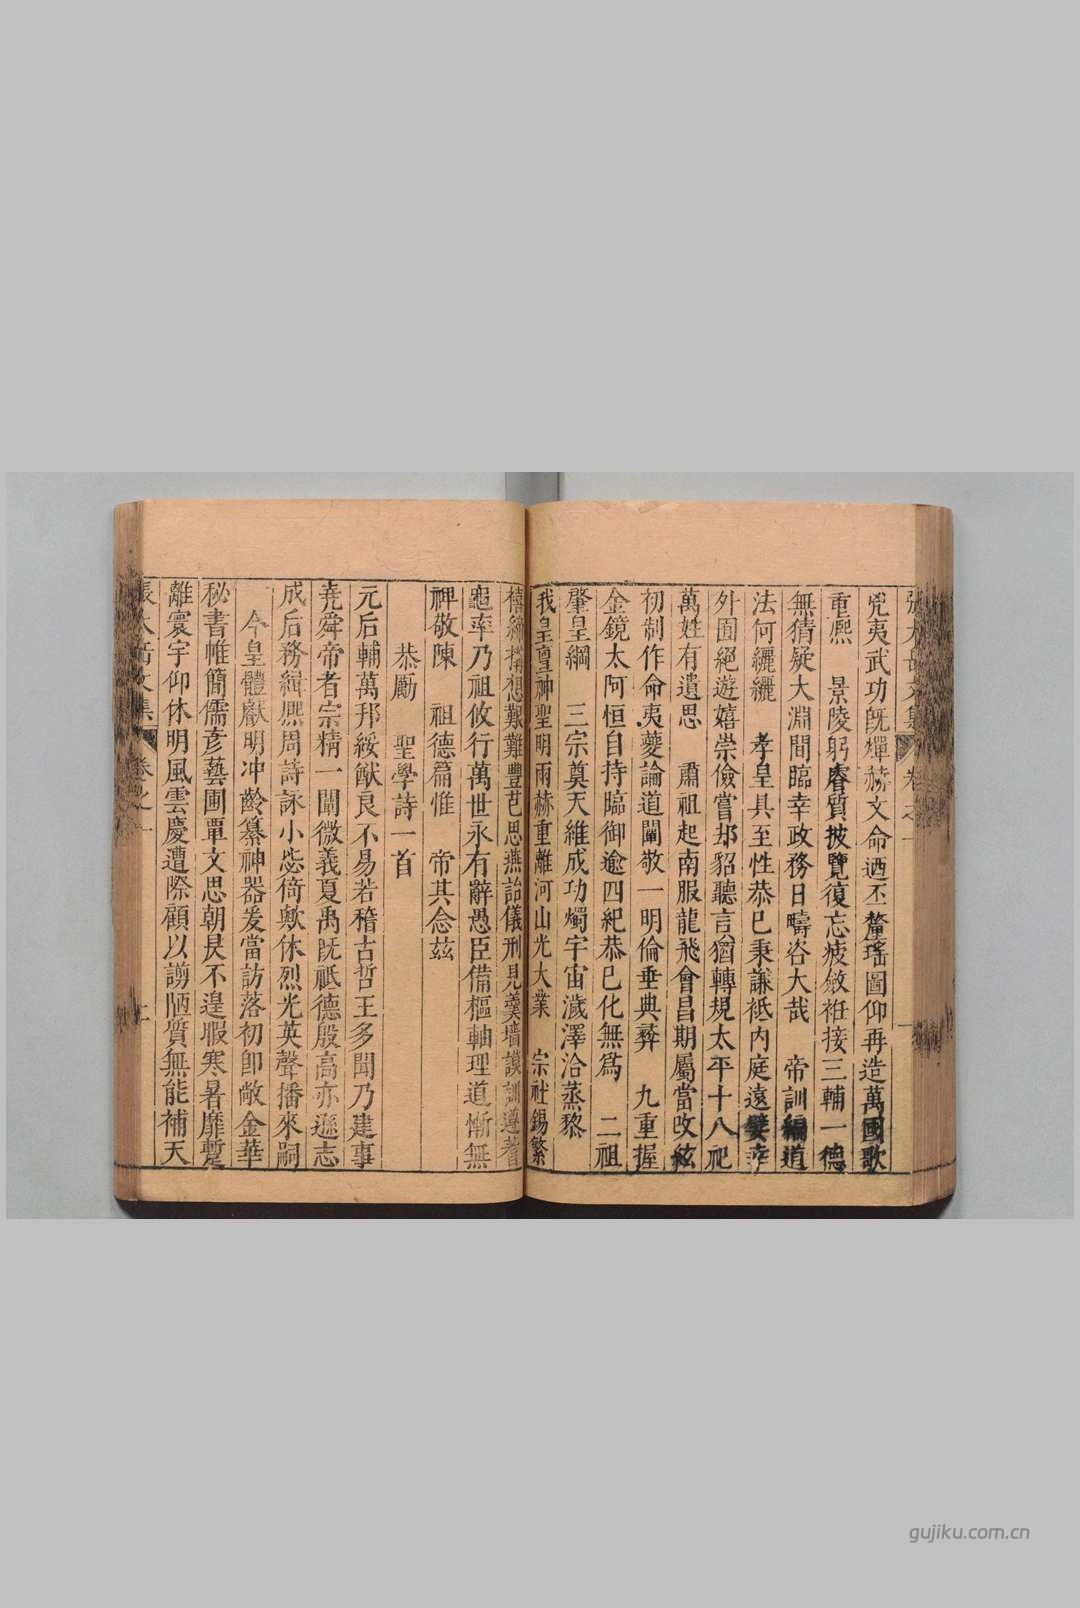 張太岳文集 卷之一
兇夷武功既燀赫文命迺丕釐瑤圖仰再造萬國歌
重熈 景陵躬睿質披覽復忘疲斂袵接三輔一德
無猜疑大淵間臨幸政務日疇咨大哉 帝訓編道
法何纚纚 孝皇具至性恭巳秉謙祗內庭遠嬖幸
外囿絕遊嬉崇儉嘗却貂聽言猶轉規太平十八祀
萬姓有遺思 肅祖起南服龍飛會昌期屬當改絃
初制作命夷夔論道闡敬一明倫垂典彝 九重握
金鏡太阿恒自持臨御逾四紀恭巳化無為 二祖
肇皇綱 三宗奠天維成功燭宇宙濊澤洽蒸黎
我皇亶神聖明兩赫重離河山光大業 宗社錫繁
禧締搆想艱難豐芑思燕詒儀刑見羹墻謨訓遵蓍
龜率乃祖攸行萬世永有辭愚臣備樞軸理道慚無
裨敬陳 祖德篇惟 帝其念茲
恭勵 聖學詩一首
元后輔萬邦綏猷良不易若稽古哲王多聞乃建事
堯舜帝者宗精一闡微義夏禹旣祗德殷高亦遜志
成后務緝熈周詩詠小毖倚歟休烈光英聲播來嗣
今皇體獻明冲齡纂神器爰當訪落初卽敞金華
秘書帷簡儒彥藝圃覃文思朝昃不遑暇寒暑靡蹔
離寰宇仰休明風雲慶遭際顧以謭陋質無能補天
張太岳文集 卷之一 二
gujiku.com.cn